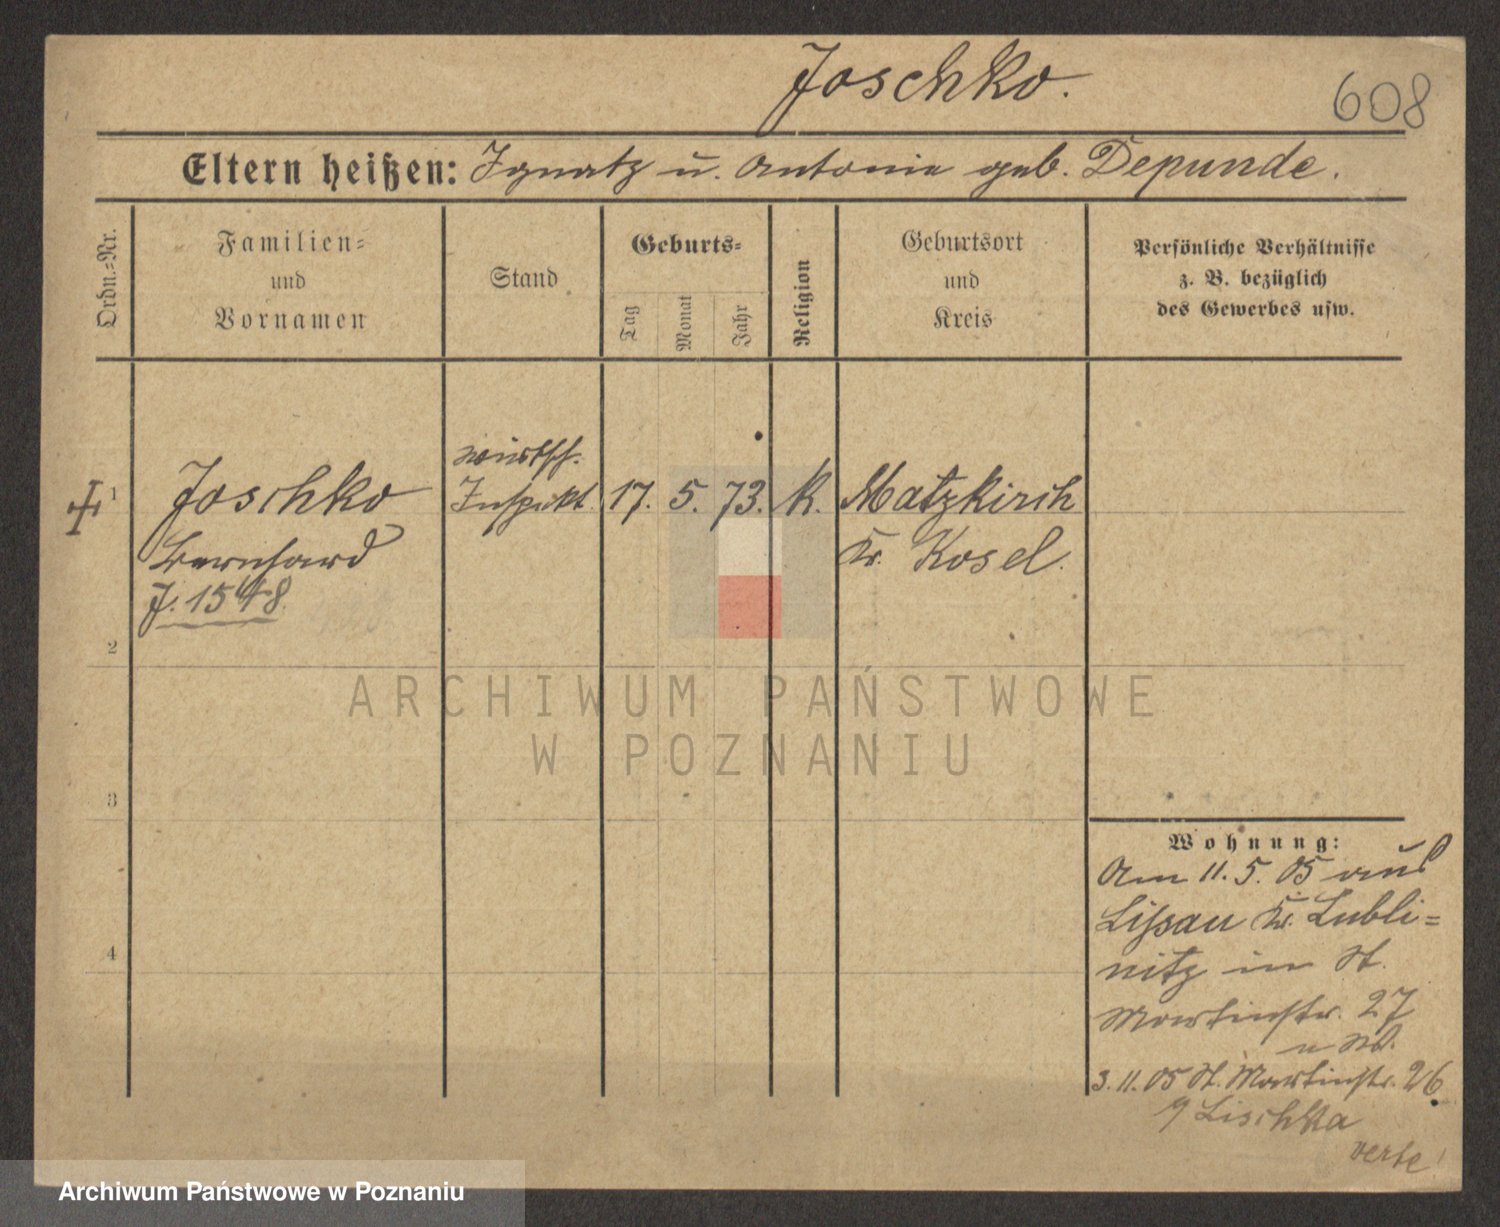 Joschko.
608
Eltern heißen: Ignatz u. Antonie geb. Depunde.
Ordn.-Nr.
Familien-
und
Vornamen
Stand
Geburts-
Tag
Monat
Jahr
Religion
Geburtsort
und
Kreis
Persönliche Verhältnisse
z. B. bezüglich
des Gewerbes usw.
1
Joschko
Bernhard
J. 1548
wirtsch.
Inspekt.
17. 5. 73. k.
Matzkirch
Kr. Kosel.
2
3
4
Wohnung:
Am 11. 5. 05 aus
Lissau Kr. Lubli=
nitz in St.
Martinstr. 27
3. 11. 05 St. Martinstr. 26
Lischka
verte!
ARCHIWUM PAŃSTWOWE
W POZNANIU
Archiwum Państwowe w Poznaniu